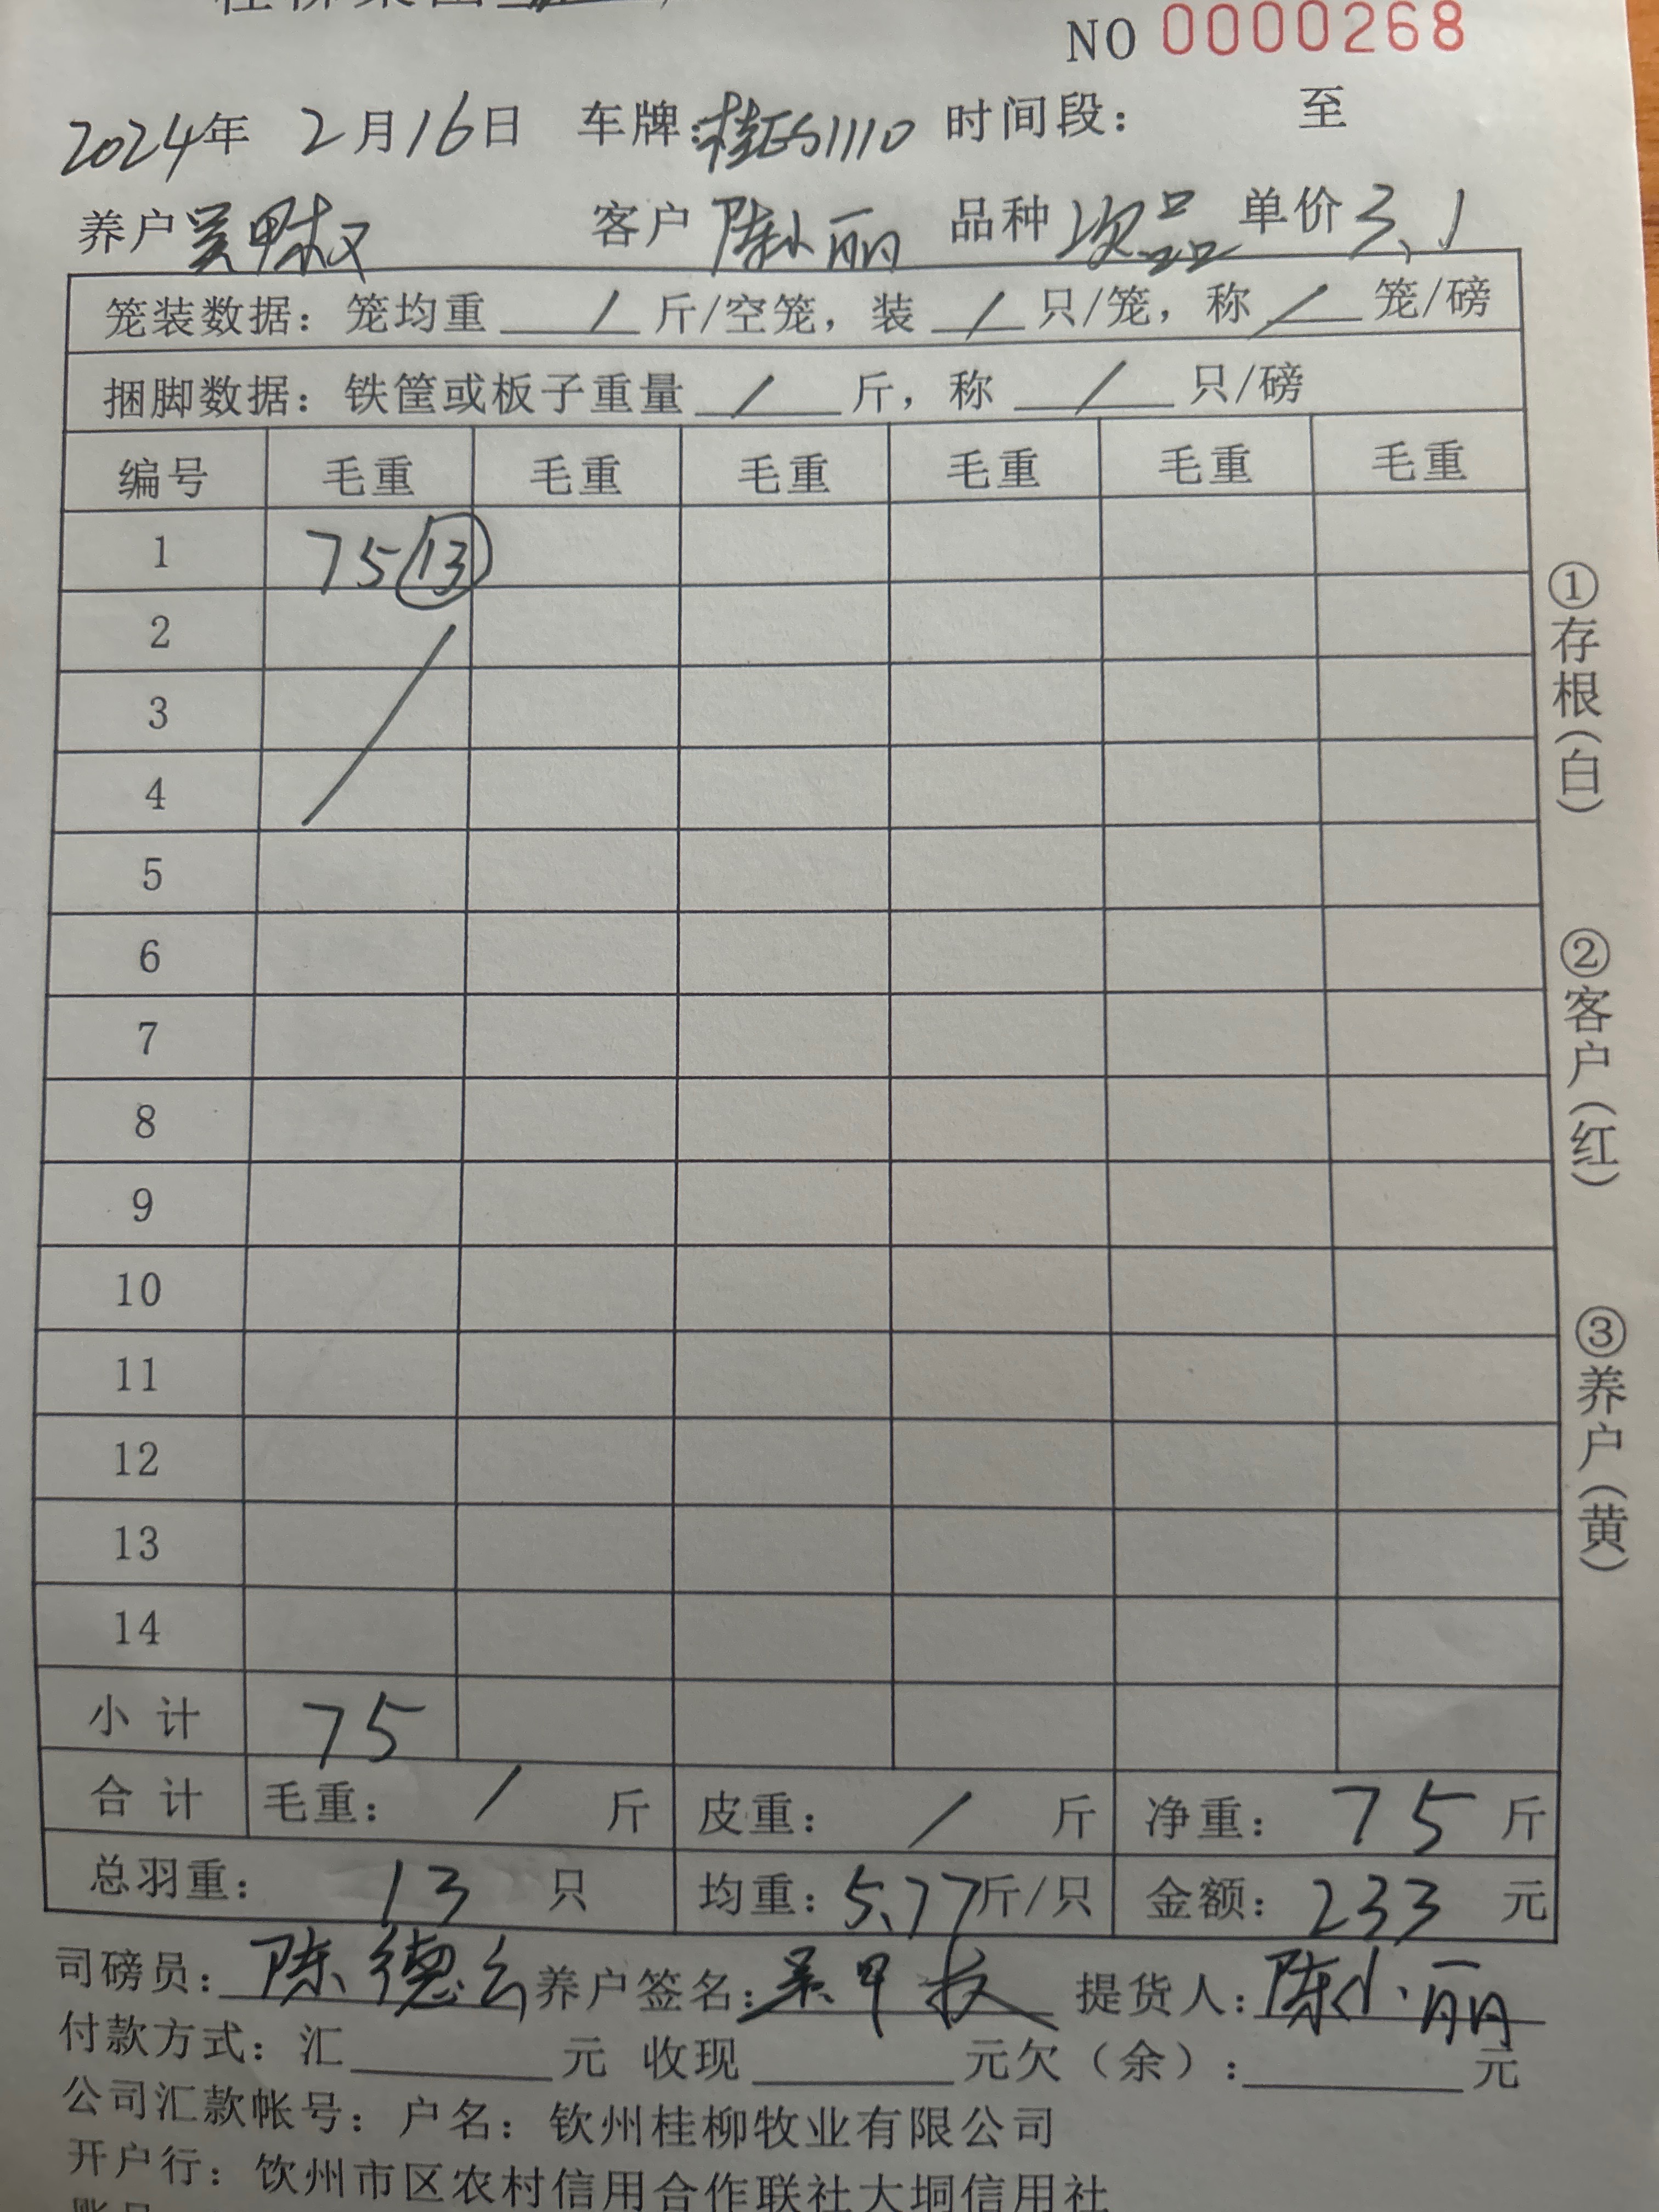 NO 0000268
2024年 2月16日 车牌: 时间段: 至
养户 吴甲权 客户 陈小丽 品种 次品 单价 3.1
笼装数据: 笼均重 / 斤/空笼, 装 / 只/笼, 称 / 笼/磅
捆脚数据: 铁筐或板子重量 / 斤, 称 / 只/磅
编号 毛重 毛重 毛重 毛重 毛重 毛重
1 75 ⑬
2
3
4
5
6
7
8
9
10
11
12
13
14
小计 75
合计 毛重: / 斤 皮重: / 斤 净重: 75 斤
总羽重: 13 只 均重: 5.77 斤/只 金额: 233 元
司磅员: 陈德 养户签名: 吴甲权 提货人: 陈小丽
付款方式: 汇 元 收现 元欠(余): 元
公司汇款帐号: 户名: 钦州桂柳牧业有限公司
开户行: 钦州市区农村信用合作联社大垌信用社
①存根(白)
②客户(红)
③养户(黄)